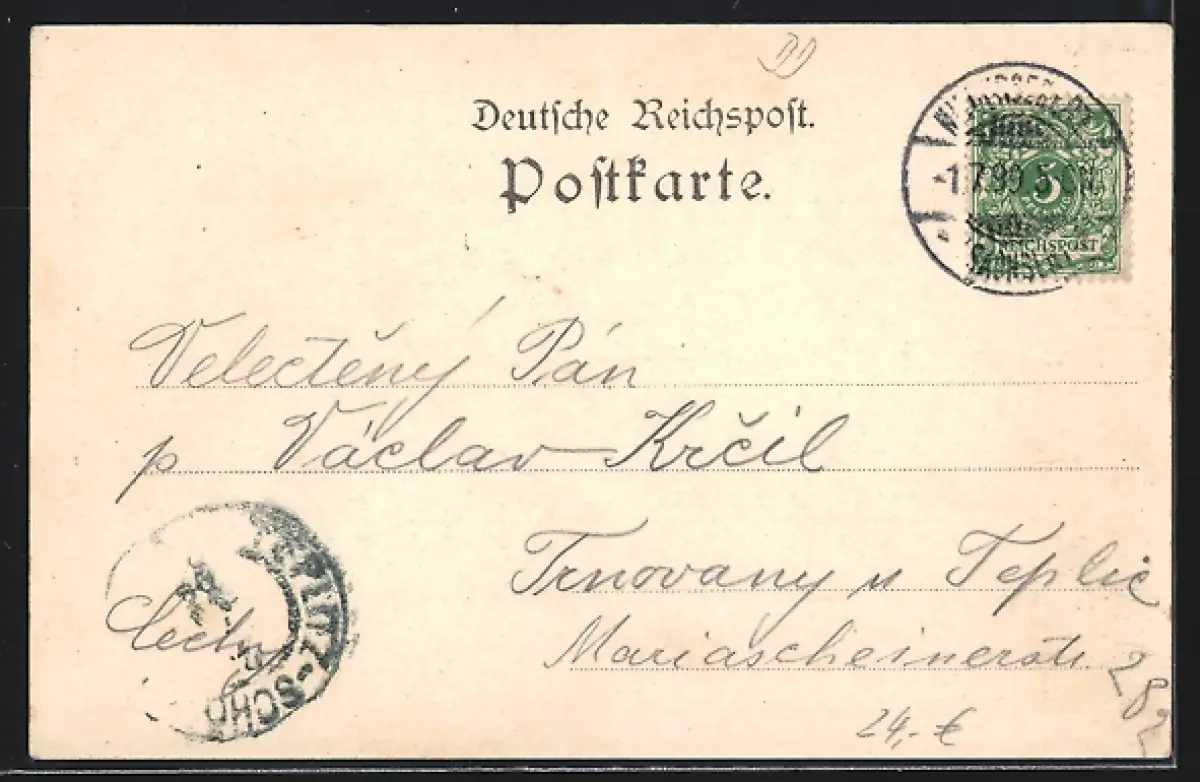 Deutsche Reichspost.
Postkarte.
1.7.99. 5
5
REICHSPOST
SACHSEN
Velectěný Pán
p Václav Krčil
Trnovany u Teplic
Mariascheinerstr. 282
Čechy
-SCHÖ
24,-€